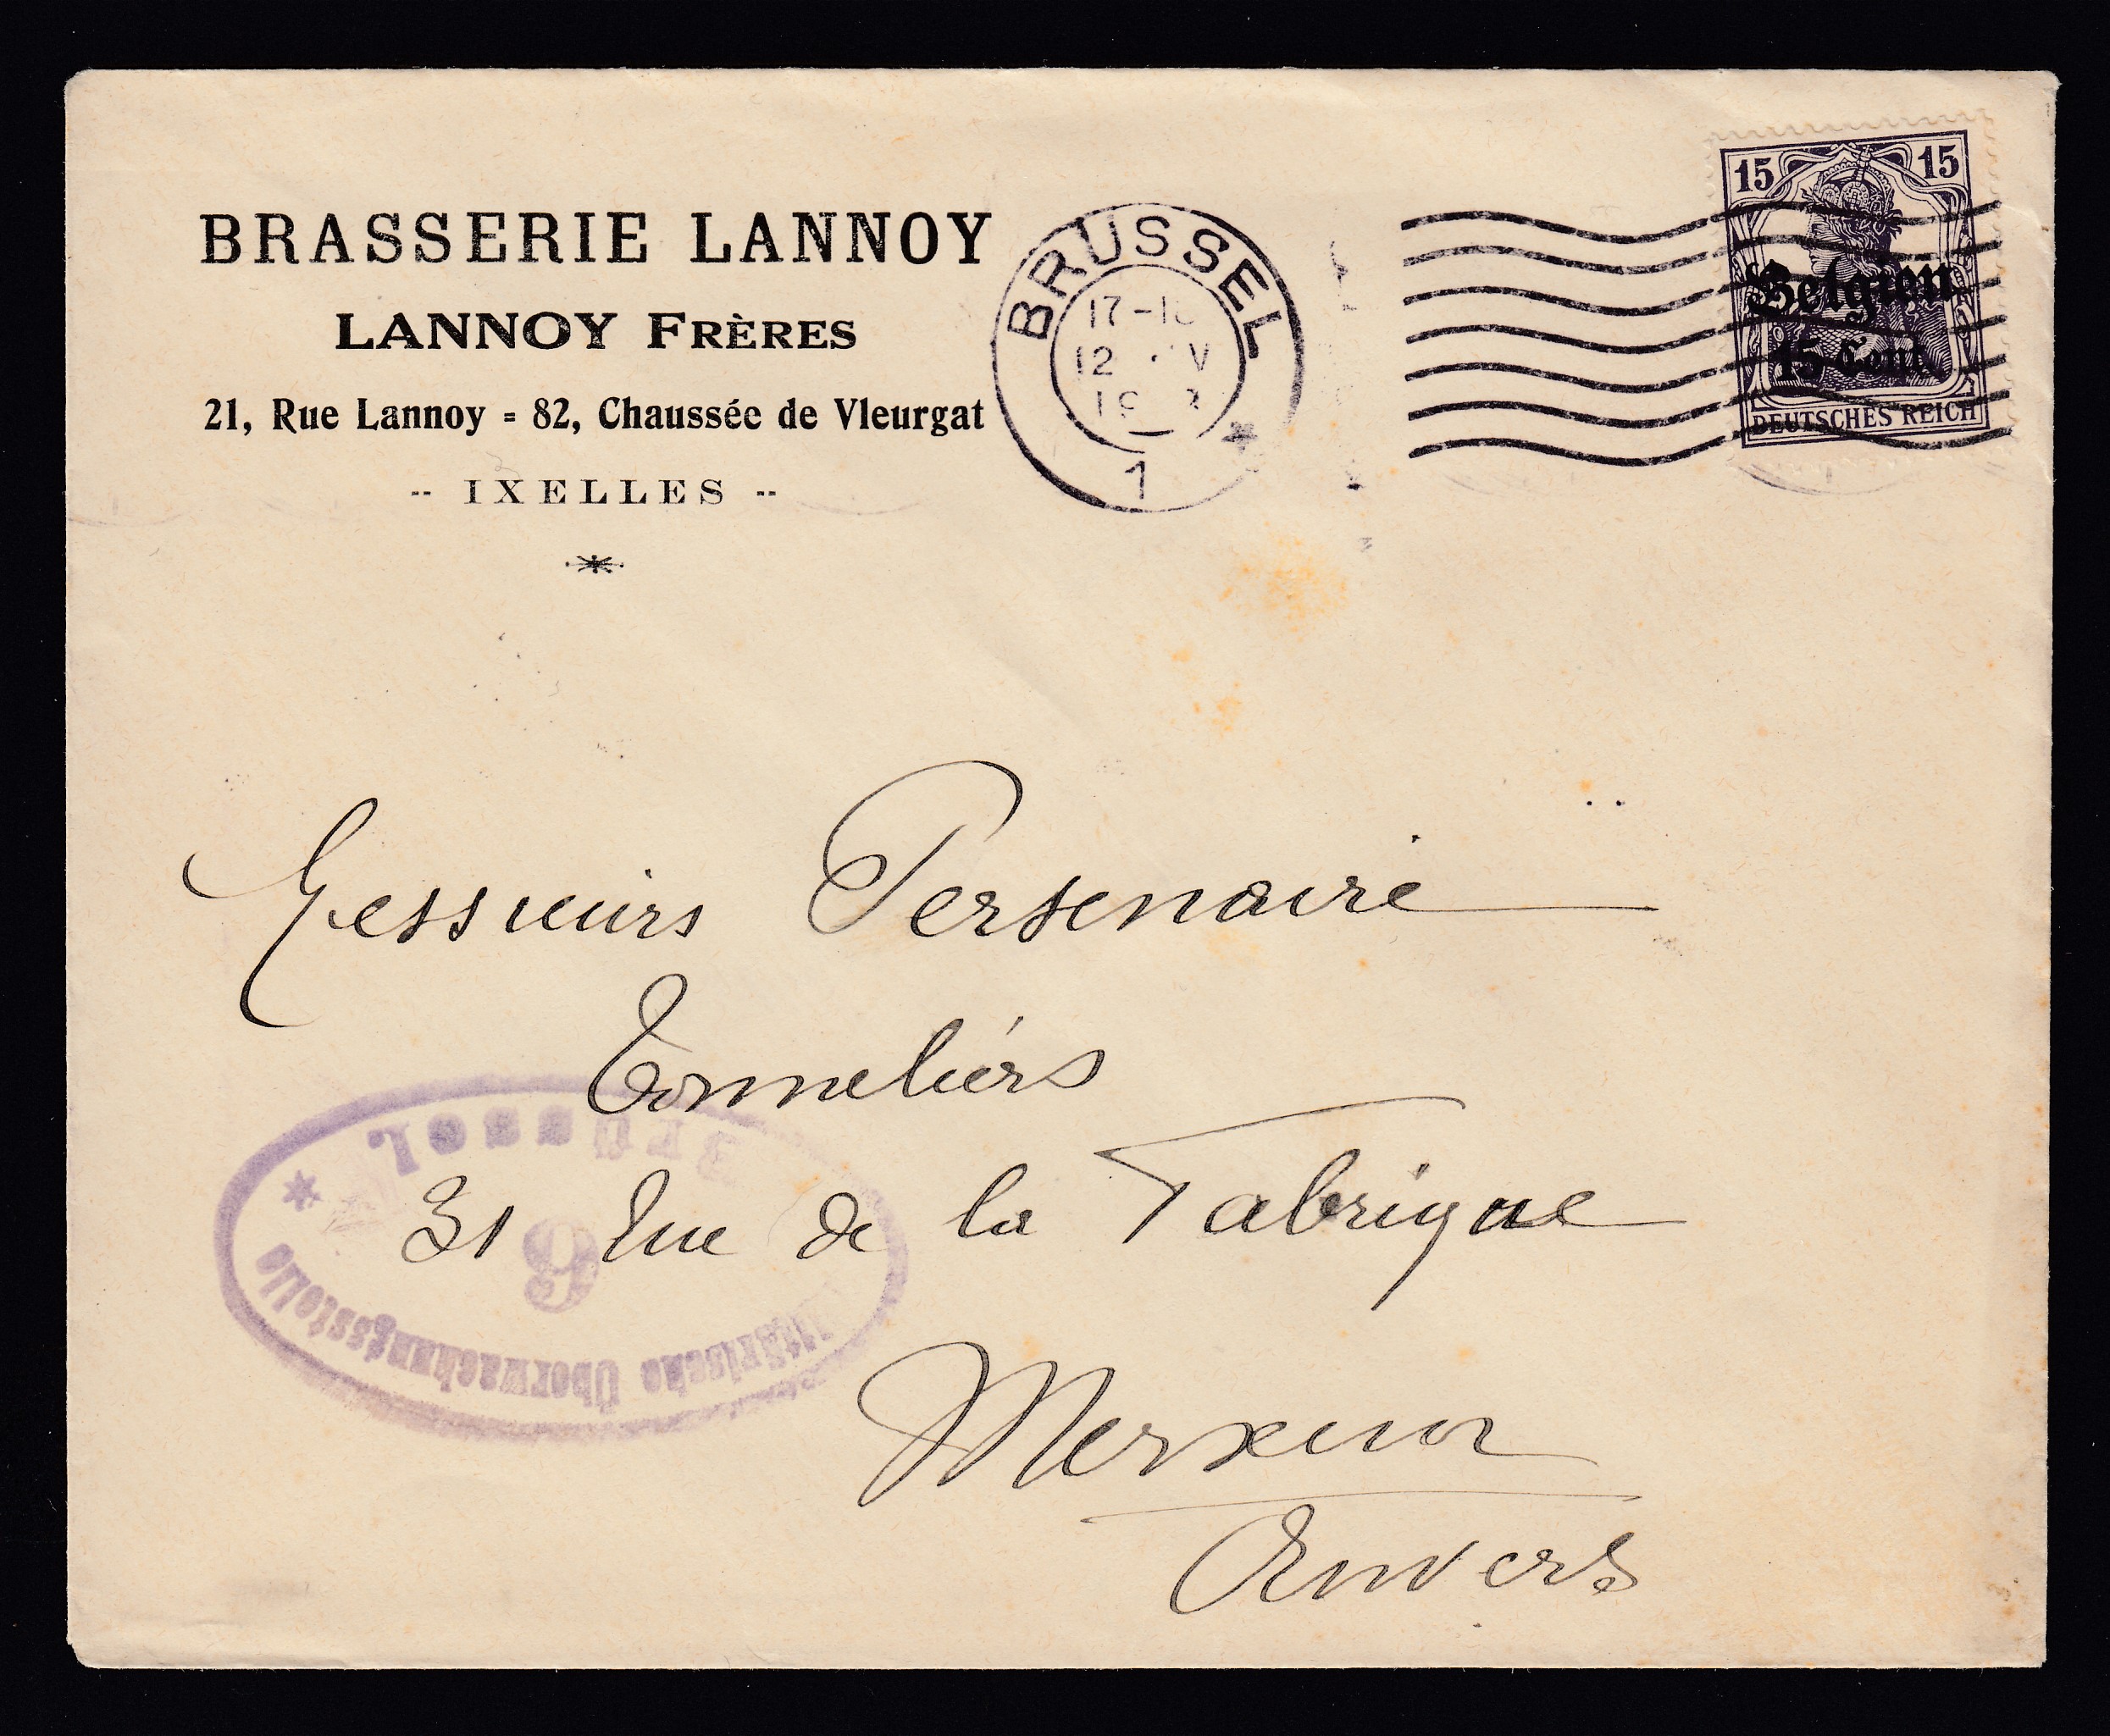 BRASSERIE LANNOY
LANNOY FRÈRES
21, Rue Lannoy = 82, Chaussée de Vleurgat
-- IXELLES --
BRÜSSEL
17-1
12 V
19
1
15 15
Belgien
15 Cent.
DEUTSCHES REICH
Messieurs Persenaire
Tonneliérs
31 Rue de la Fabrique
Merxem
Anvers
Brüssel
6
Militärische Überwachungsstelle